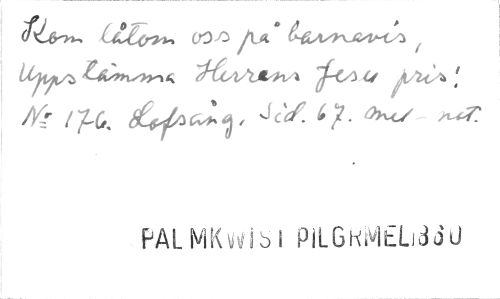 Kom låtom oss på barnavis,
Uppstämma Herrens Jesu pris!
No 176. Lofsång. Sid. 67. med not.
PALMKWIST PILGRMEL1860